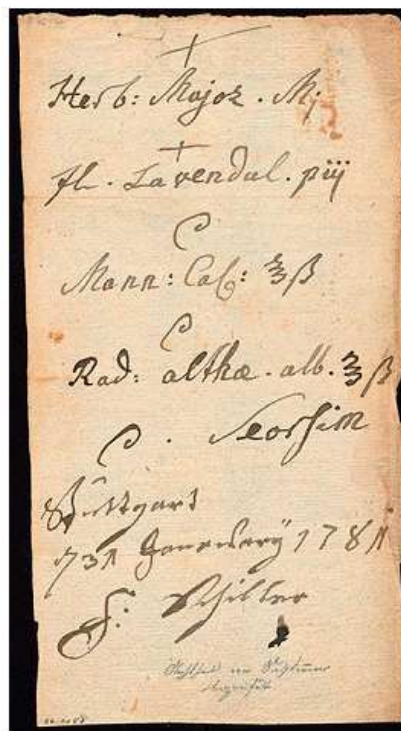 Herb: Major. Mj
fl. Lavendul. piij
Mann: Cal: ʒß
Rad: althæ. alb. ʒß
C. Seorsim
Stuttgart
31 January 1781
F: Schiller